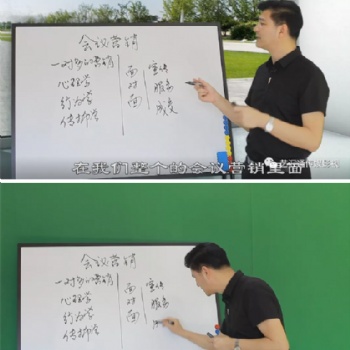 会议营销
一对多的营销
心理学
行为学
传播学
面对面
宣传
服务
成交
在我们整个的会议营销里面
会议营销
一对多的营销
心理学
行为学
传播学
面对面
宣传
服务